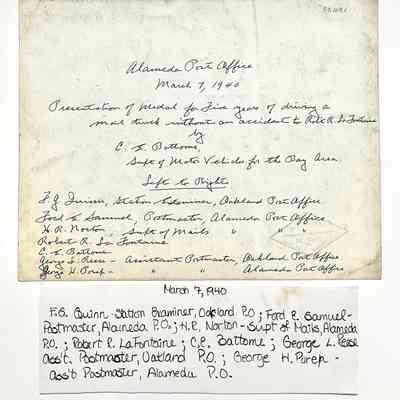 Alameda Post Office
March 7, 1940
Presentation of Medal for Five years of driving a
mail truck without an accident to Robt R. La Fontaine
by
C. E. Battome,
Supt of Motor Vehicles for the Bay Area.
Left to Right
F. G. Station Examiner, Oakland Post Office
Ford E. Samuel, Postmaster, Alameda Post Office
H. R. Norton - Supt of Mails " " "
Robert R. La Fontaine
C. E. Battome
George L. Reese - Assistant Postmaster, Oakland Post Office
George H. Porep - " " Alameda Post Office
March 7, 1940
F.G. Quinn - Station Examiner, Oakland P.O.; Ford E. Samuel -
Postmaster, Alameda P.O.; H.R. Norton - Supt of Mails, Alameda
P.O.; Robert R. LaFontaine; C.E. Battome; George L. Reese
Ass't. Postmaster, Oakland P.O.; George H. Porep -
Ass't Postmaster, Alameda P.O.